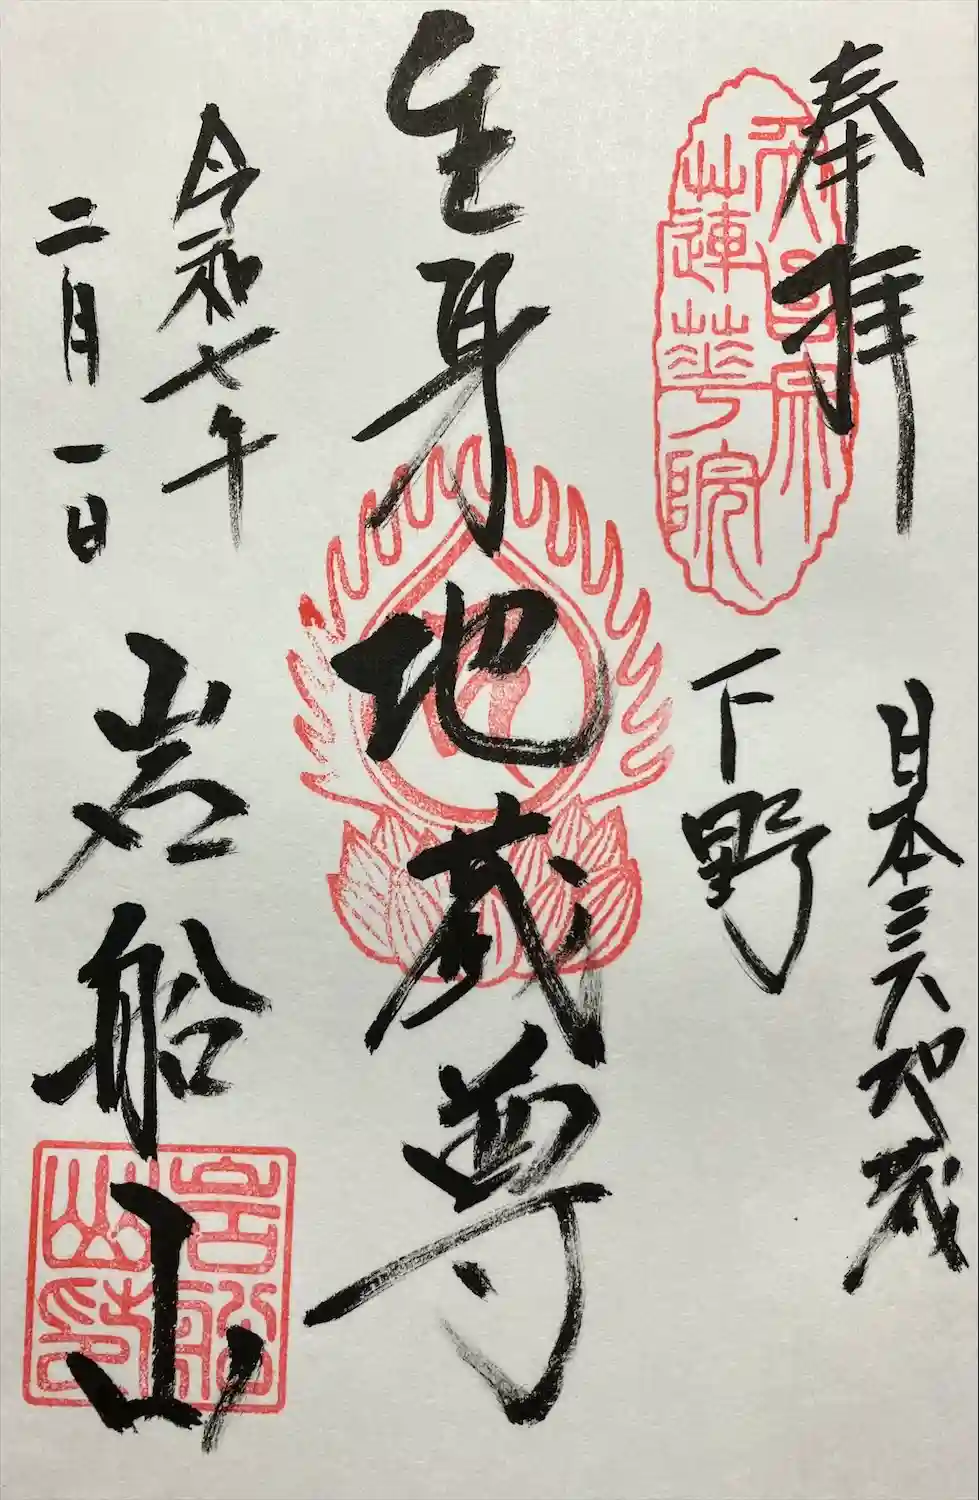 奉拝
日本三大地蔵
下野
生身地蔵尊
令和七年
二月一日
岩船山
天台宗
蓮華院
岩船
山印